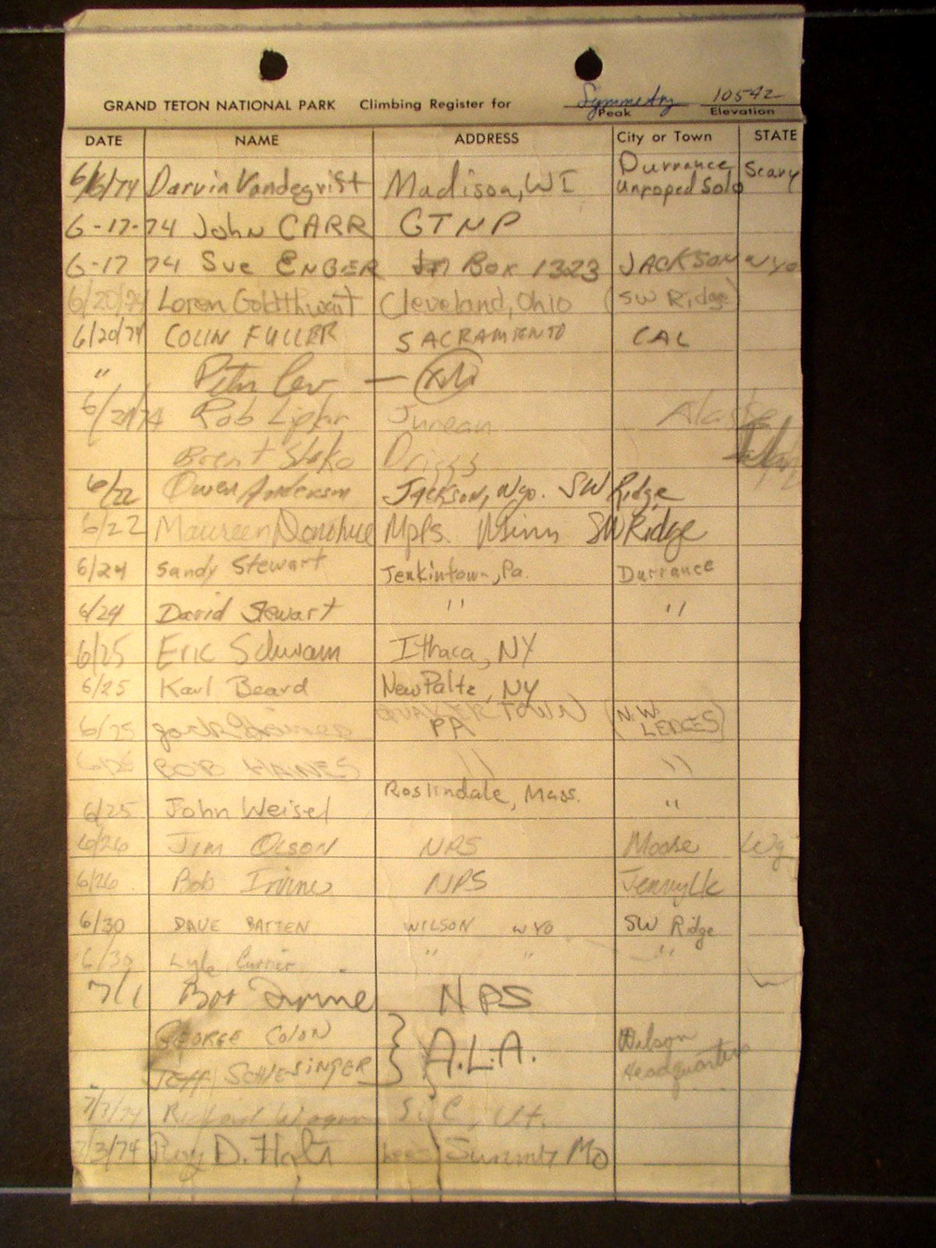 GRAND TETON NATIONAL PARK Climbing Register for Symmetry 10542
Peak Elevation
DATE NAME ADDRESS City or Town STATE
6/6/74 Darvin Vandegrift Madison, WI Durrance Unroped Solo Scary
6-17-74 John CARR GTNP
6-17 74 Sue ENGER Box 1323 JACKSON Wyo
6/20/74 Loren Goldthwait Cleveland, Ohio (SW Ridge)
6/20/74 COLIN FULLER SACRAMENTO CAL
" Peter Lev —
6/21/74 Rob Juneau Alaska
Brent Driggs
6/22 Owen Anderson Jackson, Wyo. SW Ridge
6/22 Maureen Donohue Mpls. Minn SW Ridge
6/24 Sandy Stewart Jenkintown, Pa. Durrance
6/24 David Stewart " "
6/25 Eric Schwam Ithaca, NY
6/25 Karl Beard New Paltz, NY
6/25 Jack QUAKERTOWN PA (N.W. LEDGES)
BOB HAINES " "
6/25 John Weisel Roslindale, Mass. "
6/26 Jim Olson NPS Moose Wy
6/26 Bob Irvine NPS Jenny Lk
6/30 DAVE BATTEN WILSON WYO SW Ridge
6/30 Lyle Currie " " "
7/1 Bob Irvine NPS
GEORGE COLON } A.L.A. Wilson
JEFF SCHLESINGER Headquarters
7/3/74 Richard SLC, Ut.
7/3/74 Roy D. Holt Lees Summit Mo